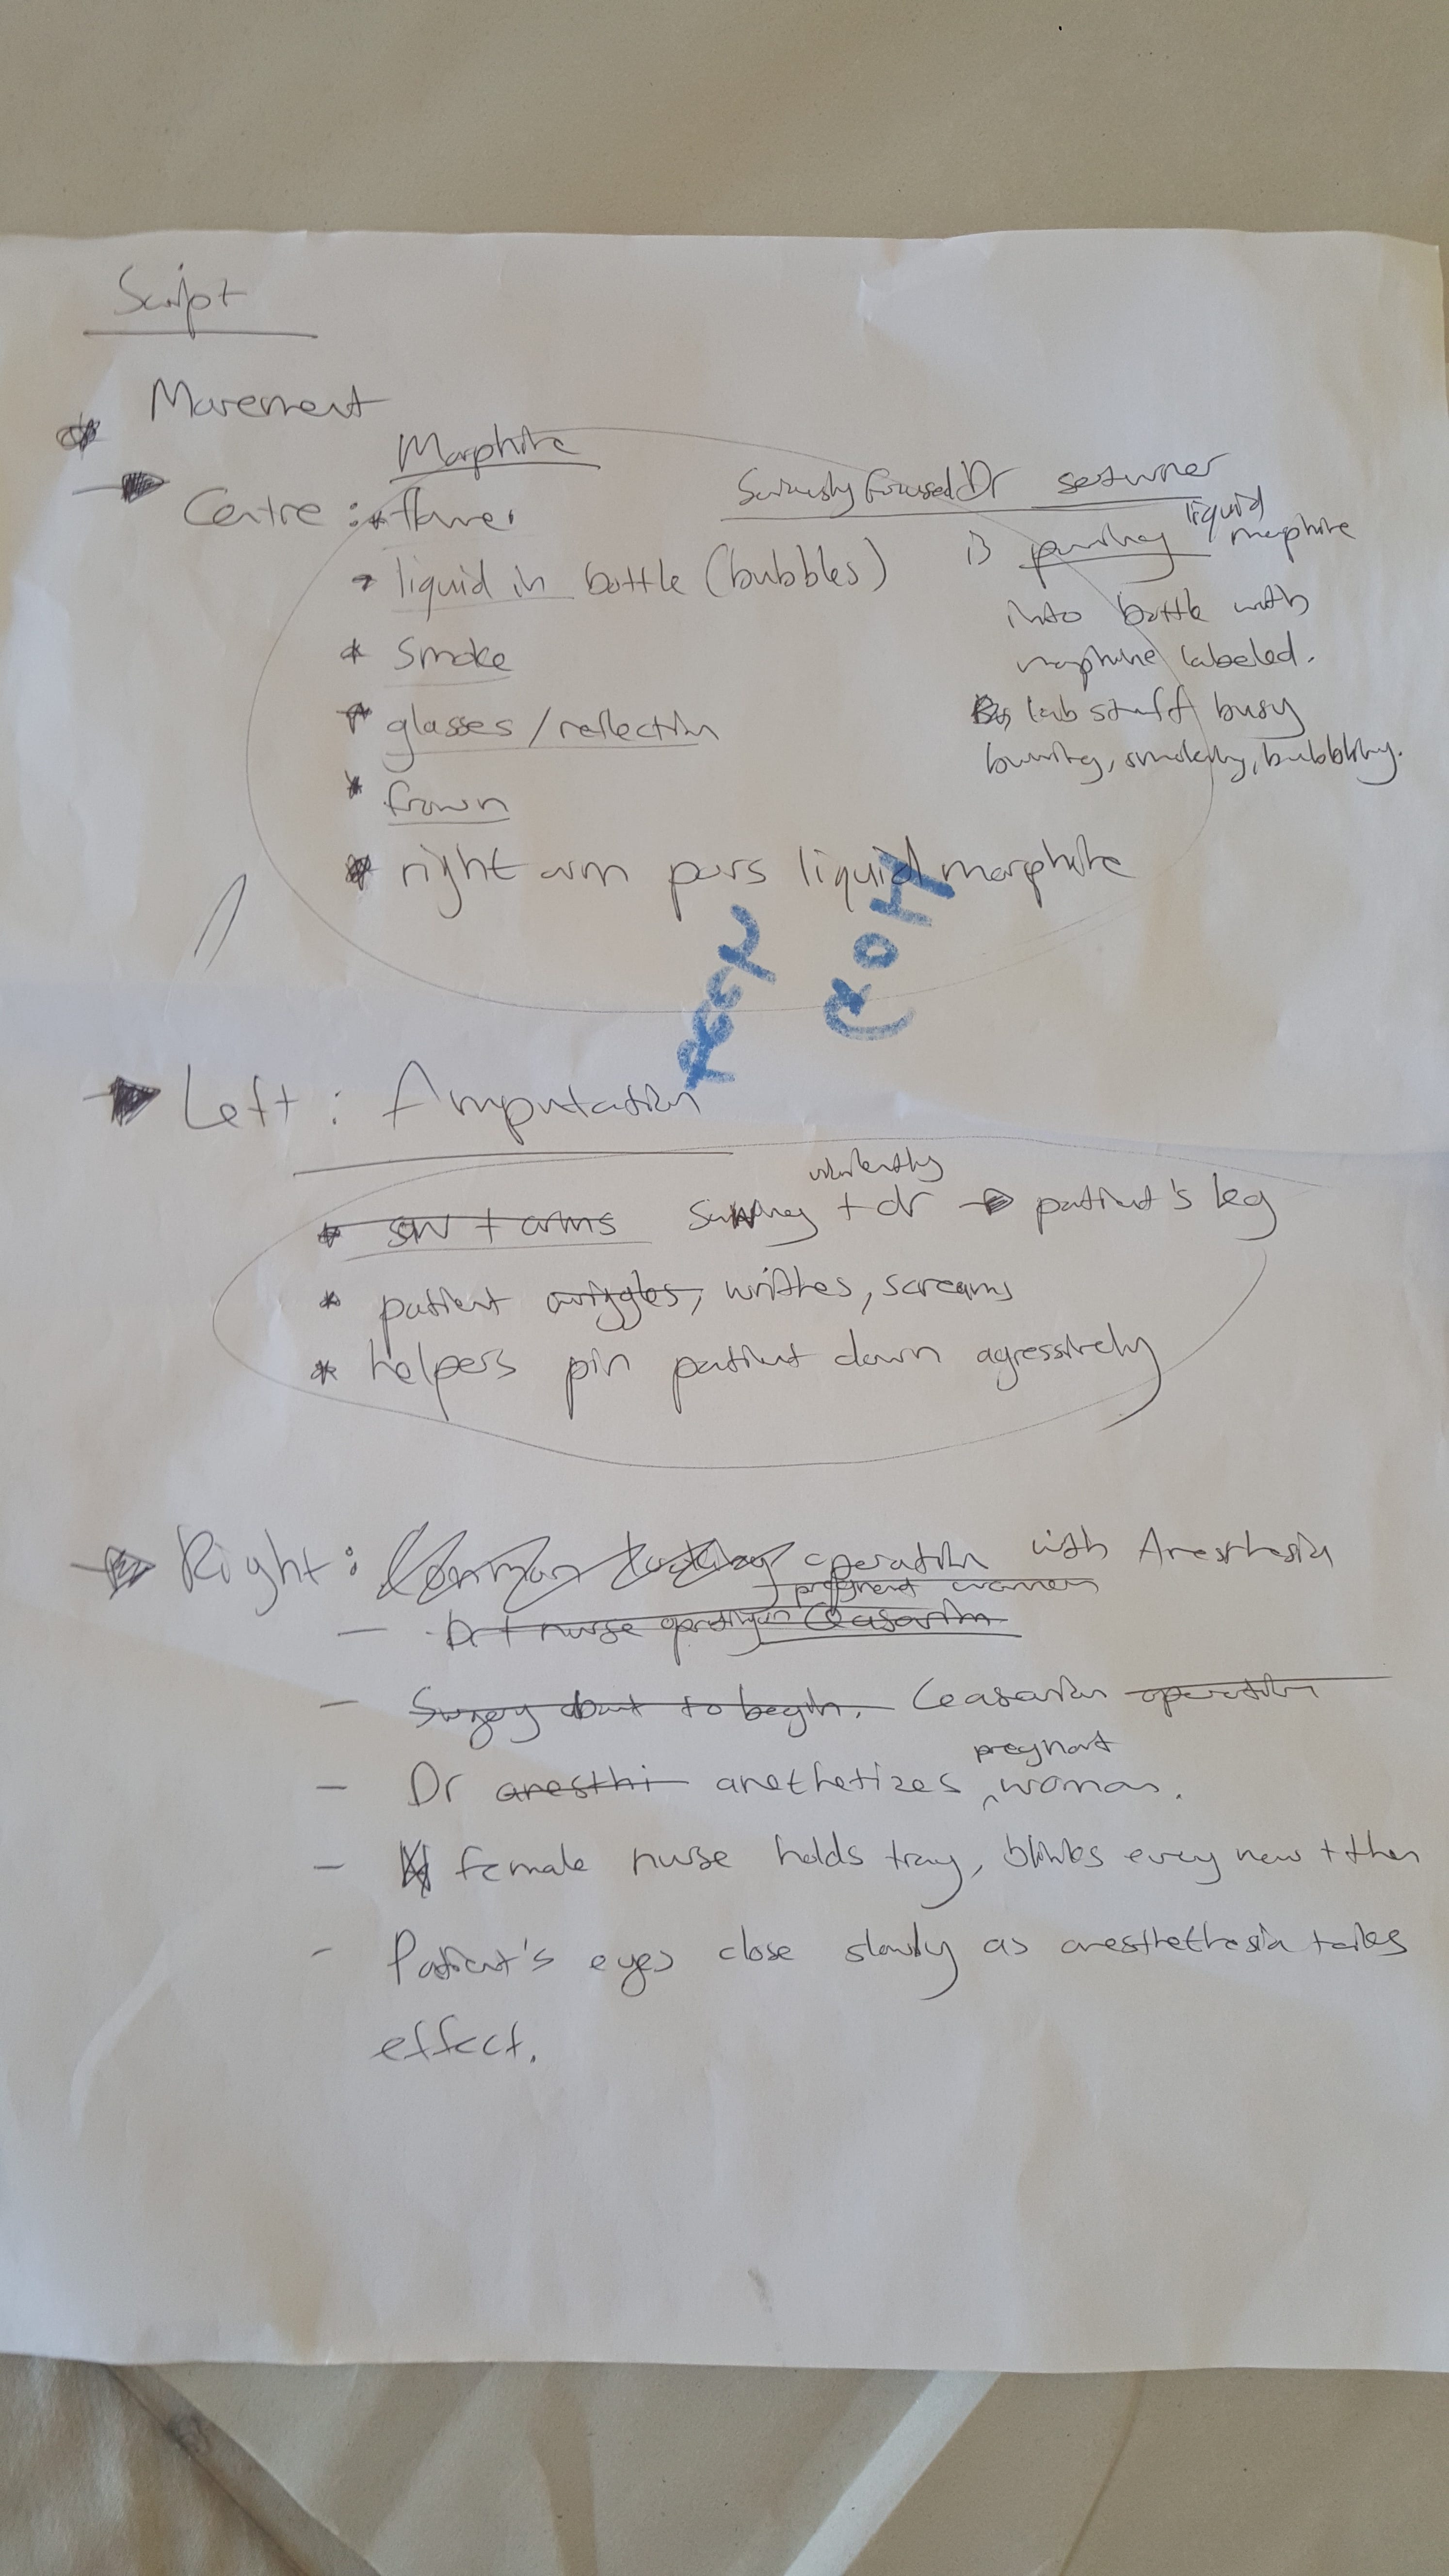 Script
Movement
Morphine
Centre : * flame
liquid in bottle (bubbles)
* Smoke
* glasses / reflection
* frown
* right arm pors liquid morphine
Seriously focused Dr Seturner
is pouring liquid morphine
into bottle with
morphine labeled.
lab stuff busy
burning, smoking, bubbling.
Left : Amputation
* saw + arms sawing violently + dr → patient's leg
* patient wriggles, writhes, screams
* helpers pin patient down agressively
Right : operation with Anesthesia
- Dr + nurse operating on pregnant women Ceasarian
- Surgery about to begin. Ceasarian operation
- Dr anesthi anethetizes pregnant woman.
- female nurse holds tray, blinks every now + then
- Patient's eyes close slowly as anesthethesia takes
effect.